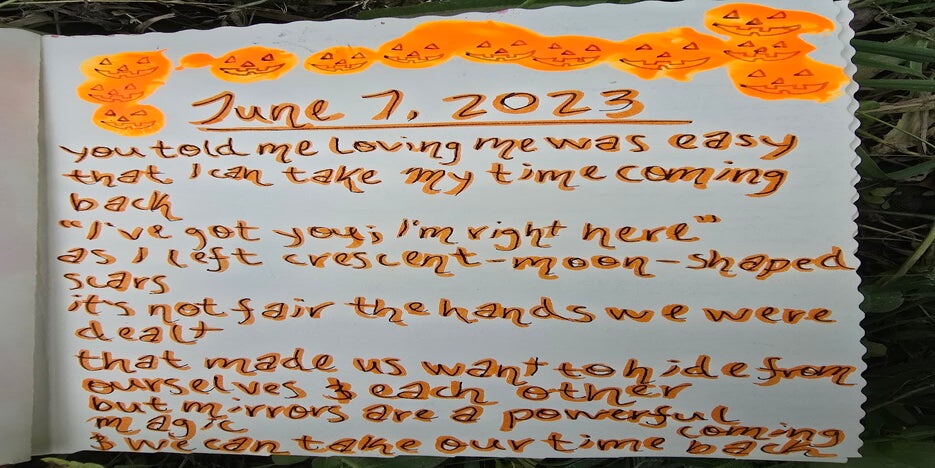 June 7, 2023
you told me loving me was easy
that I can take my time coming
back
"I've got you; I'm right here"
as I left crescent-moon-shaped
scars
it's not fair the hands we were
dealt
that made us want to hide from
ourselves & each other
but mirrors are a powerful
magic
& we can take our time coming back